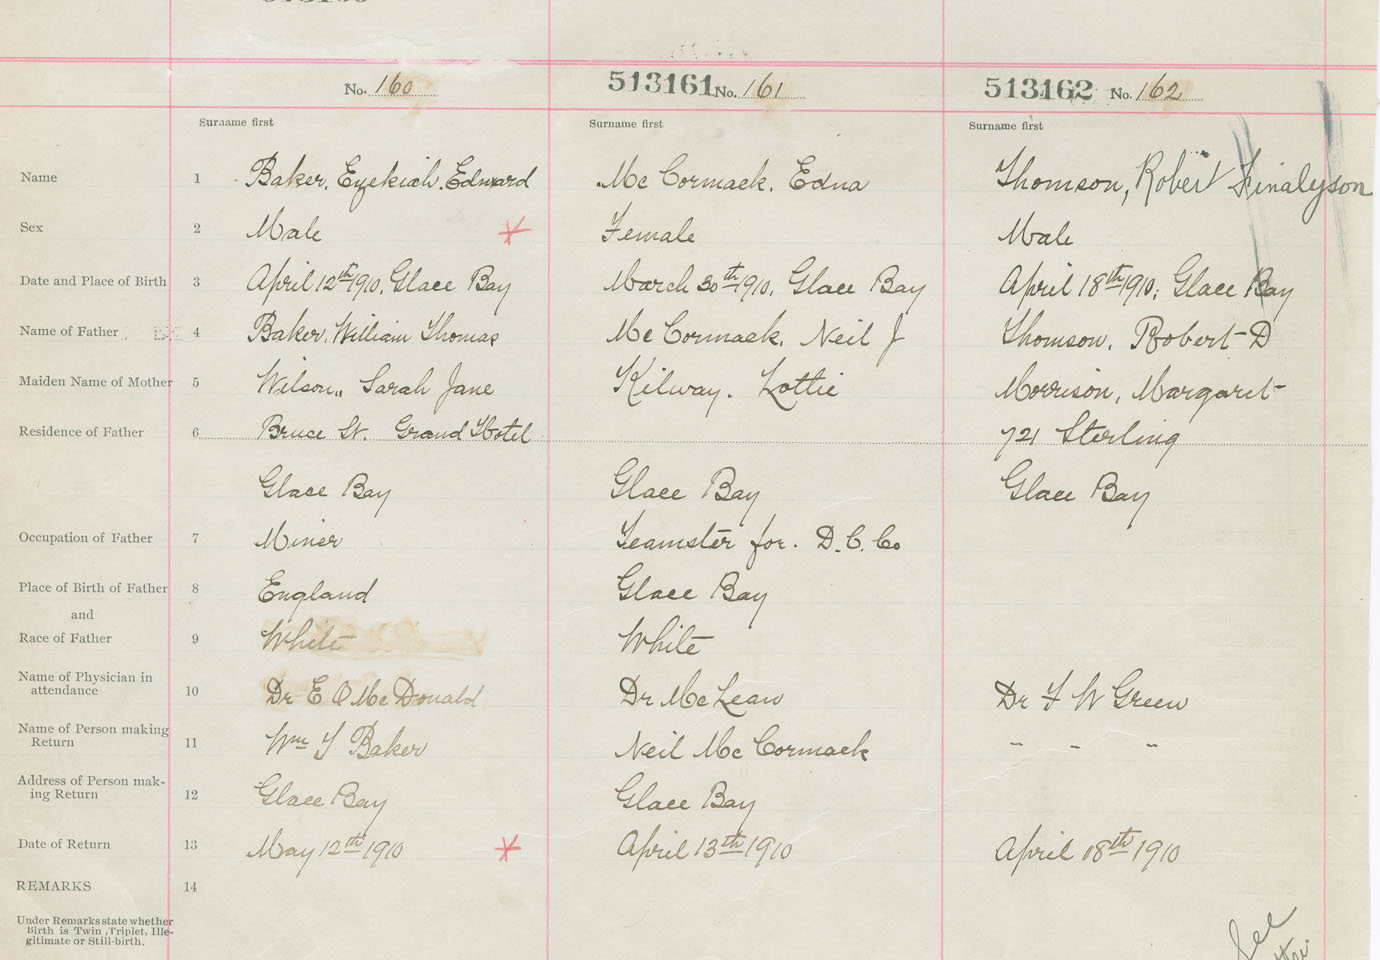 No. 160 513161 No. 161 513162 No. 162
Surname first Surname first Surname first
Name 1 Baker, Ezekiah Edward Mc Cormack, Edna Thomson, Robert Finalyson
Sex 2 Male Female Male
Date and Place of Birth 3 April 12th 1910, Glace Bay March 30th 1910, Glace Bay April 18th 1910; Glace Bay
Name of Father 4 Baker, William Thomas Mc Cormack, Neil J Thomson, Robert D
Maiden Name of Mother 5 Wilson, Sarah Jane Kilway. Lottie Morrison, Margaret
Residence of Father 6 Bruce St. Grand Hotel 721 Sterling
Glace Bay Glace Bay Glace Bay
Occupation of Father 7 Miner Teamster for. D.C.Co
Place of Birth of Father 8 England Glace Bay
and
Race of Father 9 White White
Name of Physician in
attendance 10 Dr E O Mc Donald Dr McLean Dr F W Green
Name of Person making
Return 11 Wm T Baker Neil Mc Cormack " " "
Address of Person mak-
ing Return 12 Glace Bay Glace Bay
Date of Return 13 May 12th 1910 April 13th 1910 April 18th 1910
REMARKS 14
Under Remarks state whether
Birth is Twin, Triplet, Ille-
gitimate or Still-birth.
See